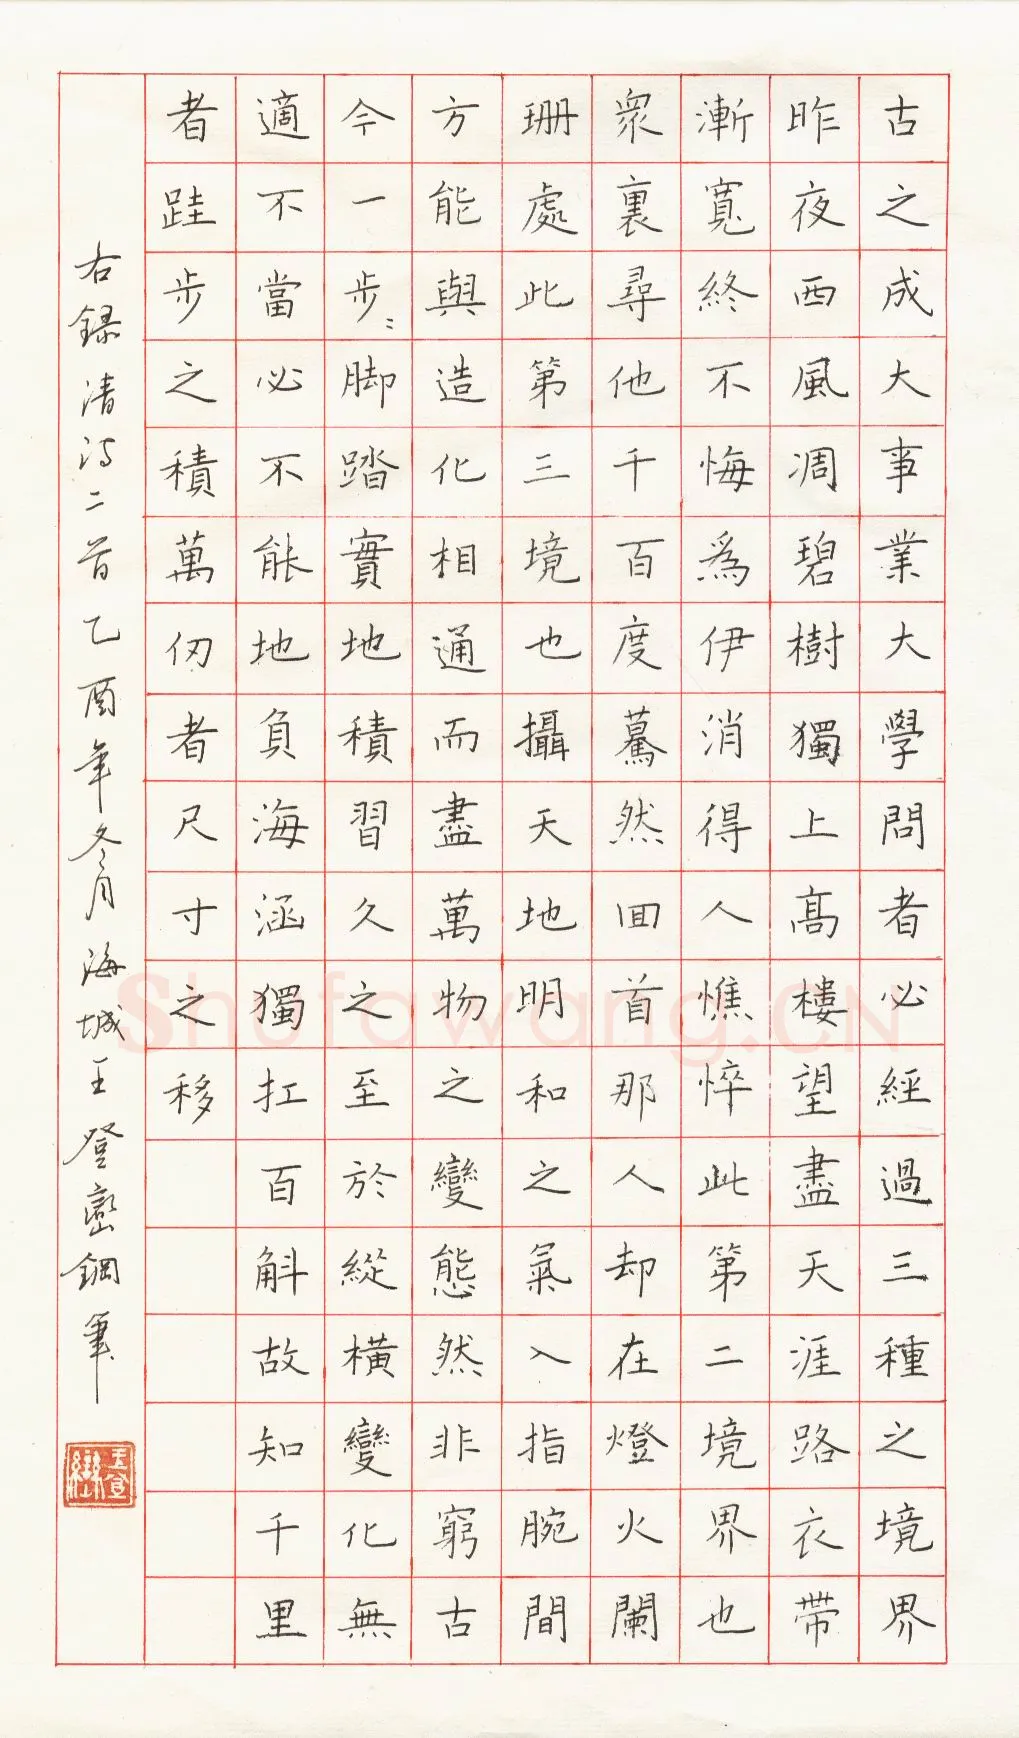 古之成大事業大學問者必經過三種之境界
昨夜西風凋碧樹獨上高樓望盡天涯路衣帶
漸寬終不悔為伊消得人憔悴此第二境界也
眾裏尋他千百度驀然回首那人却在燈火闌
珊處此第三境也攝天地明和之氣入指腕間
方能與造化相通而盡萬物之變態然非窮古
今一步〻脚踏實地積習久之至於縱橫變化無
適不當必不能地負海涵獨扛百斛故知千里
者跬步之積萬仞者尺寸之移
右錄清诗二首乙酉年冬月海城王登巒鋼筆
王登巒
Shufawang.CN